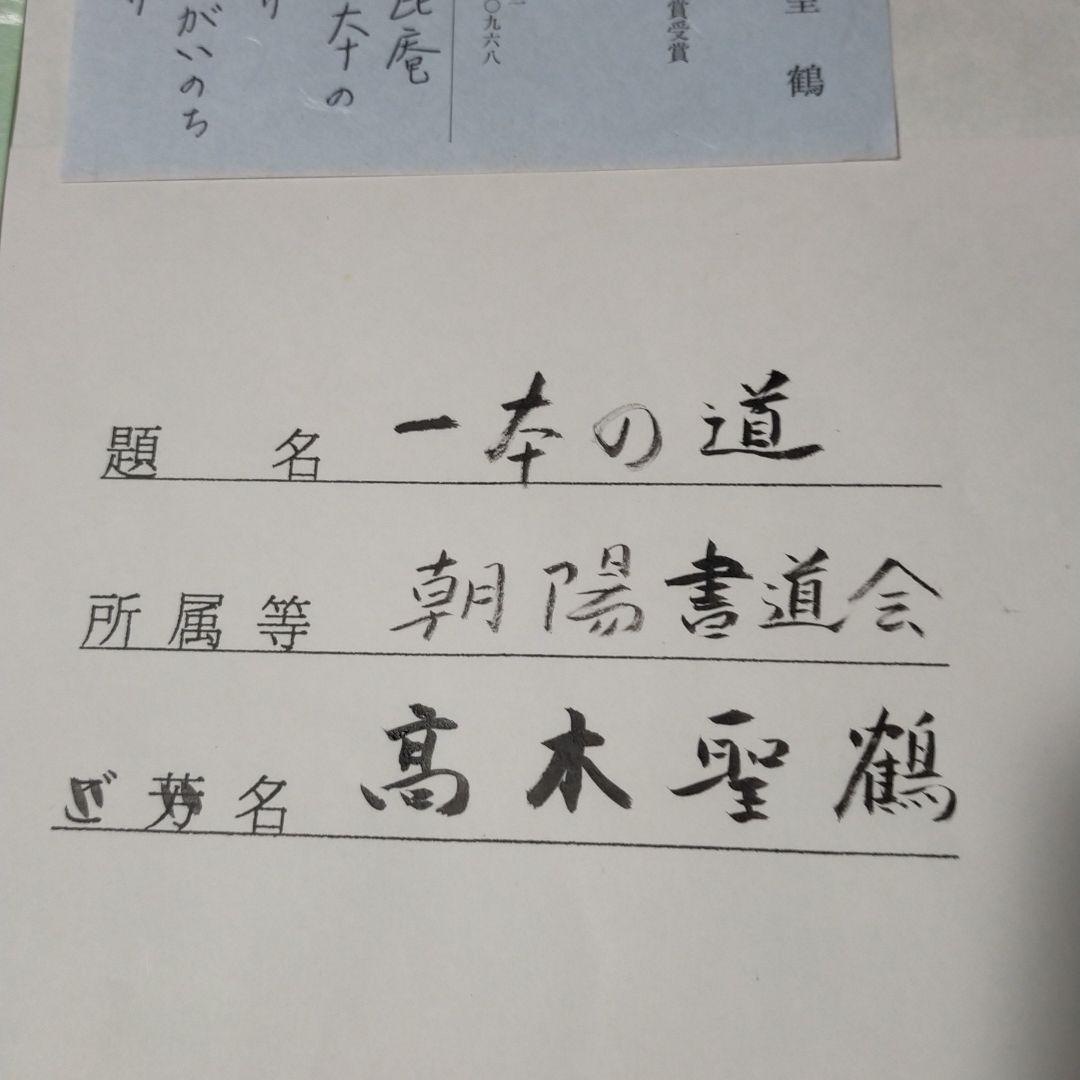 聖鶴
賞受賞
〇九六八
庵
の
がいのち
り
題名 一本の道
所属等 朝陽書道会
ご芳名 高木聖鶴